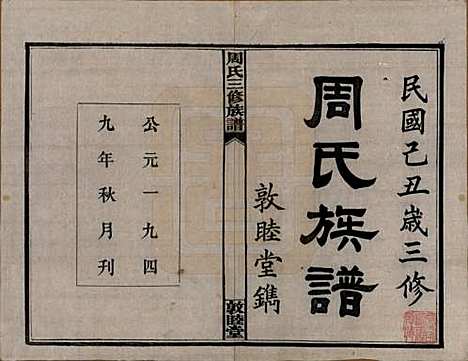 民國己丑歲三修
周氏族譜
敦睦堂鐫
周氏三修族譜
敦睦堂
公元一九四
九年秋月刊